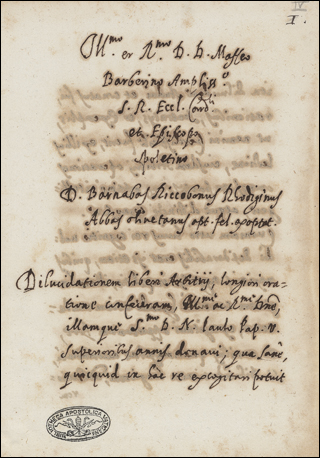 I.
Ill.mo et R.mo D. D. Maffeo
Barberino Ampliss.o
S. R. Eccl. Cardli
et Episcopo
Spoletino
D. Barnabas Riccobonus Rhodiginus
Abbas opt. fel. exoptat.
Dilucidationem liberi Arbitrij, longiori ora-
tione Ill.me ac R.me Dne,
illamque S.mo D. N. Paulo Pap. V.
superioribus annis donavi; qua sane,
quicquid in hac re excogitari potuit
BIBLIOTHECA APOSTOLICA VATICANA